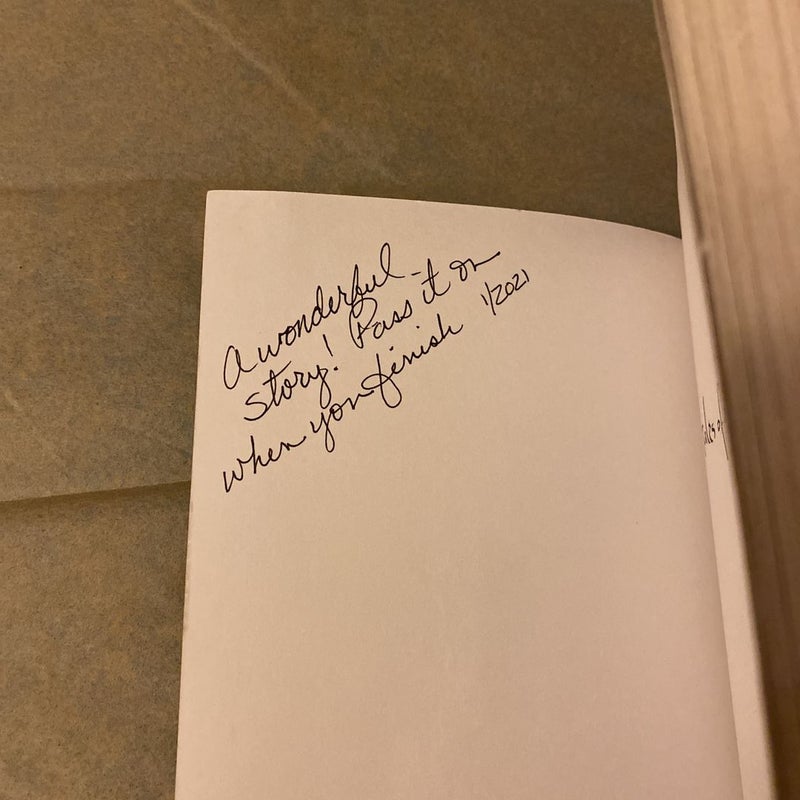 A wonderful
story! Pass it on
when you finish 1/2021